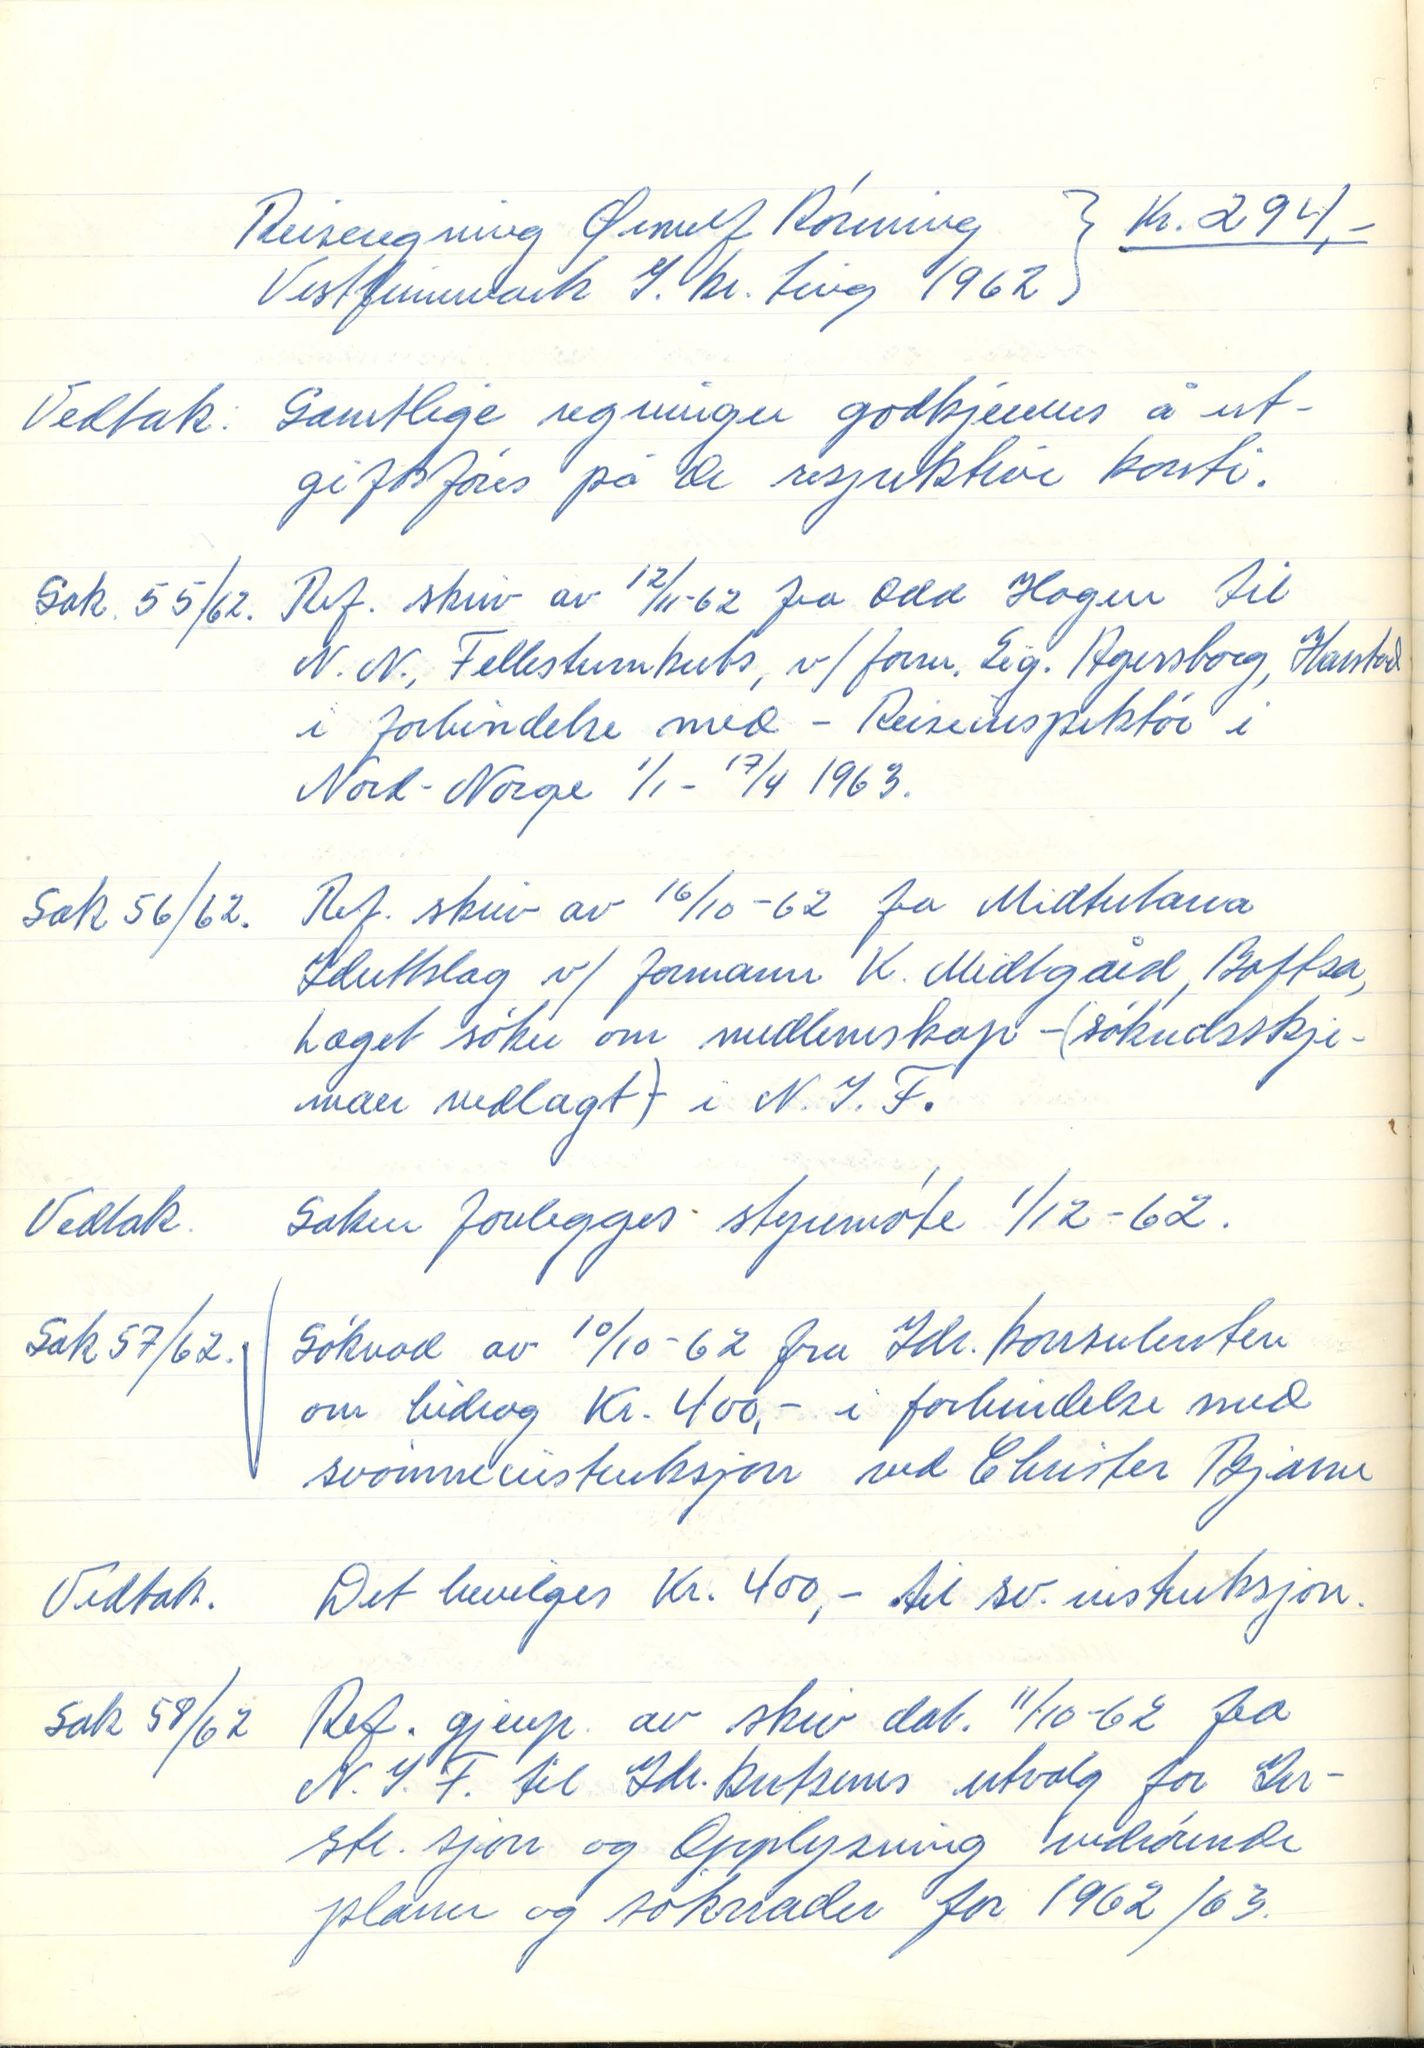 Reiseregning Ørnulf Rønning } Kr. 294,-
Vestfinnmark I. kr. ting 1962
Vedtak: Samtlige regninger godkjennes å ut-
giftsføres på de respektive konti.
Sak. 55/62. Ref. skriv av 12/11-62 fra Odd Hagen til
N. N., Fellesturnkrets, v/ form. Sig. Agersborg, Harstad
i forbindelse med - Reiseinspektör i
Nord-Norge 1/1 - 17/4 1963.
Sak 56/62. Ref. skriv av 16/10-62 fra Midtretana
Idrettslag v/ formann K. Midtgård, Boftsa,
Laget söker om medlemskap -(söknadsskje-
maer vedlagt)- i N. I. F.
Vedtak. Saken forlegges styremöte 1/12-62.
Sak 57/62. Söknad av 10/10-62 fra Idr. konsulenten
om bidrag Kr. 400,- i forbindelse med
svömmeinstruksjon ved Christer Bjarne
Vedtak. Det bevilges Kr. 400,- til sv. instruksjon.
Sak 58/62 Ref. gjenp. av skriv dat. 11/10-62 fra
N. I. F. til Idr. kretsenes utvalg for In-
str. sjon og Opplysning vedrörende
planer og söknader for 1962/63.